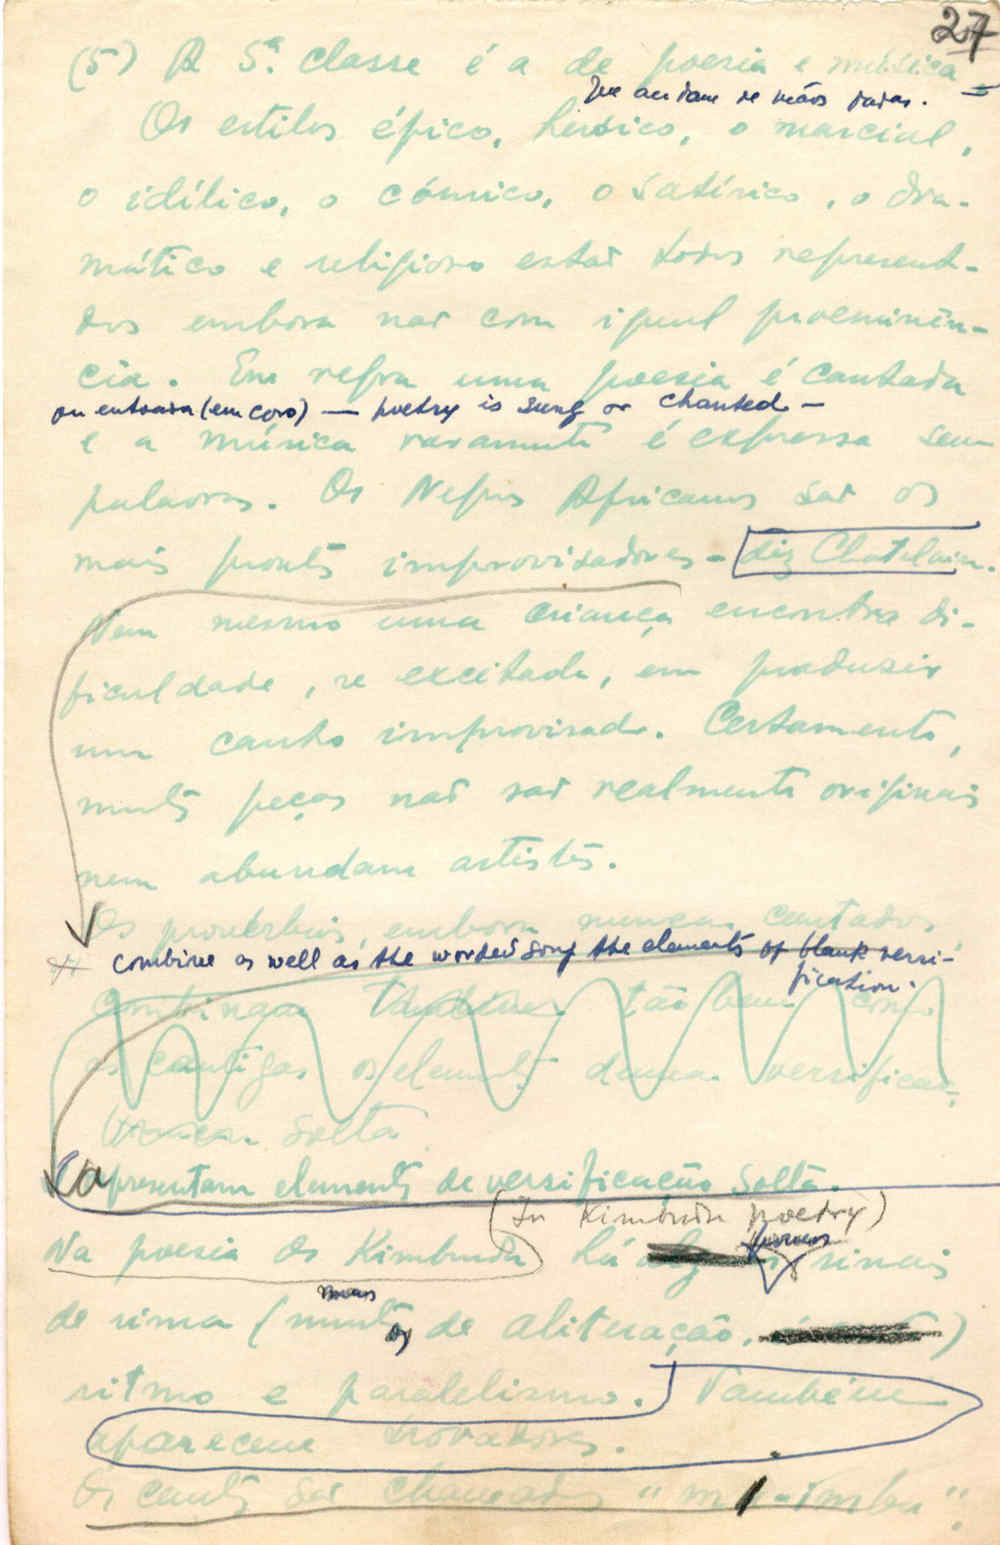 27
(5) A 5.ª classe é a de poesia e música =
que andam de mãos dadas.
Os estilos épico, heróico, o marcial,
o idílico, o cómico, o satírico, o dra-
mático e religioso estão todos represent-
dos embora não com igual proeminên-
cia. Em regra uma poesia é cantada
ou entoada (em coro) — poetry is sung or chanted —
e a música raramente é expressa sem
palavras. Os Negros Africanos são os
mais prontos improvisadores - diz Chatelain.
Nem mesmo uma criança encontra di-
ficuldade, se excitada, em produzir
um canto improvisado. Certamente,
muitas peças não são realmente originais
nem abundam artistas.
Os provérbios, embora nunca cantados,
combine as well as the worded song the elements of blank versi-
fication.
combinam tão bem como
as cantigas os elementos duma versifica-
solta
apresentam elementos de versificação solta.
(In Kimbundu poetry)
Na poesia dos Kimbundu há poucos sinais
de rima (mais de aliteração, )
ritmo e paralelismo. Também
aparecem trovadores.
Os cantos são chamados "mi-imbu".